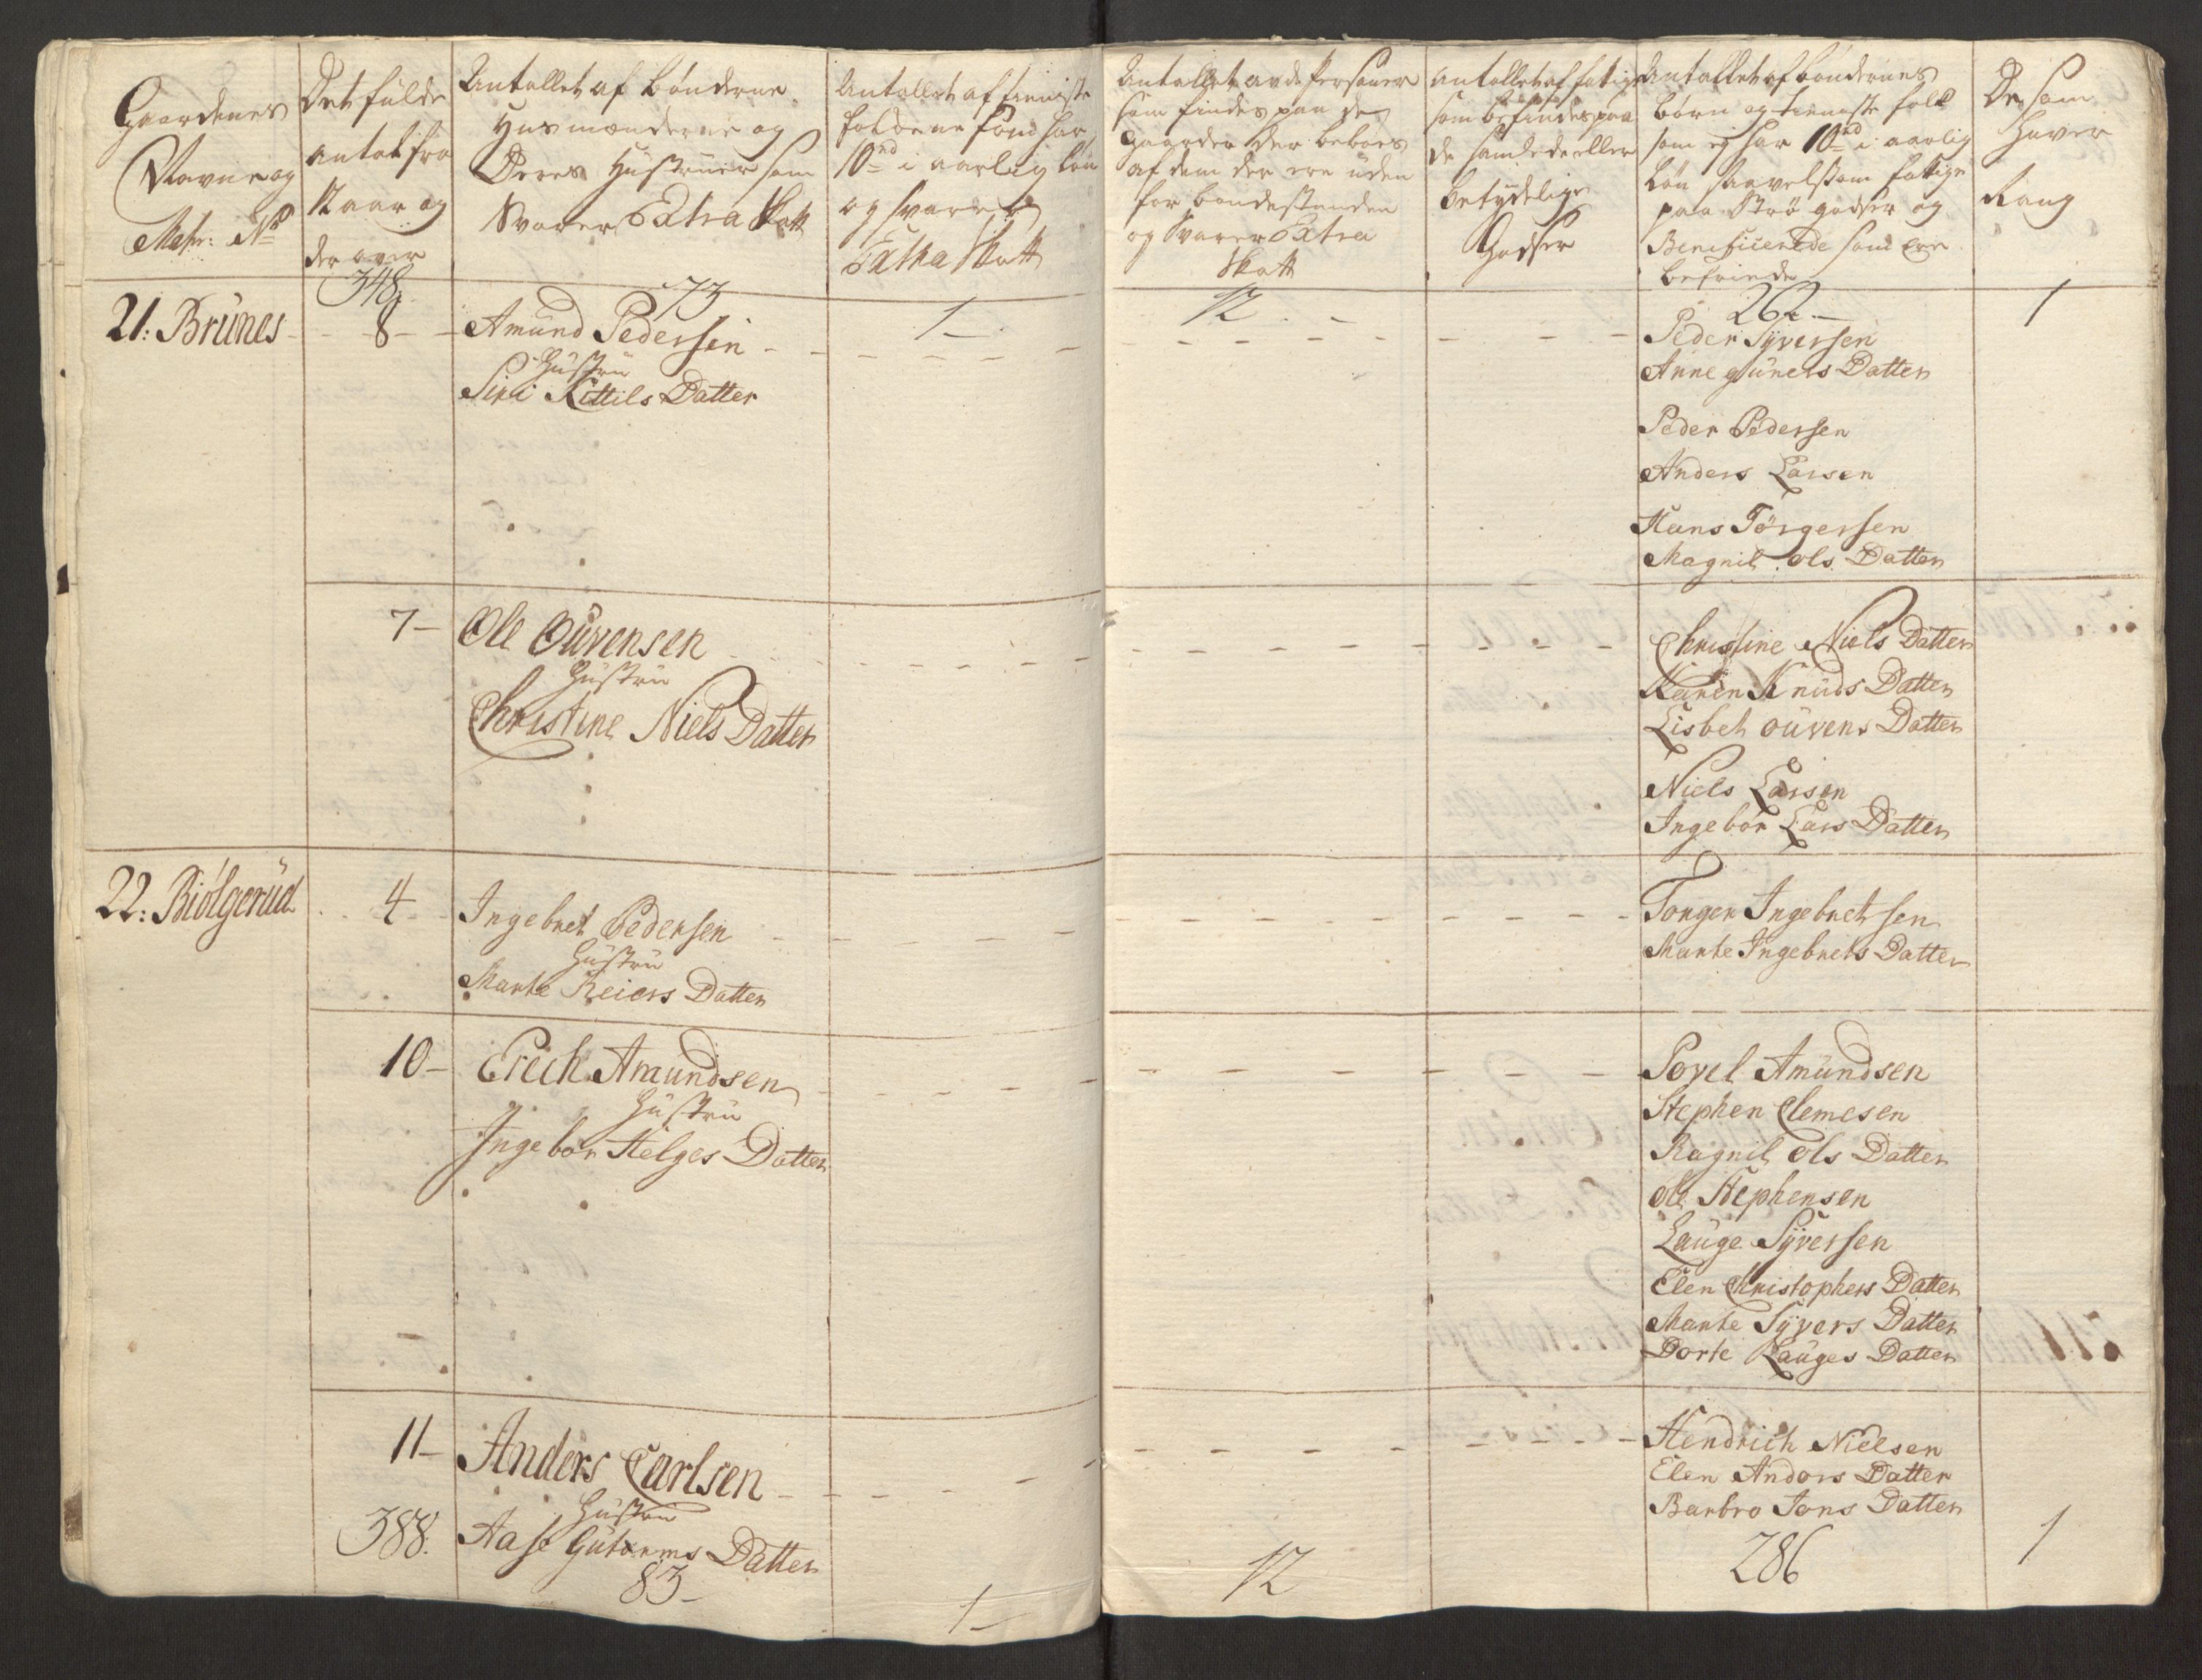 Gaardenes
Navne og
Matr: No
Det fulde
antal fra
12 aar og
der over
Antallet af bønderne
Husmænderne og
Deres Hustruer som
Svarer Extra Skatt
Antallet af tieniste
folkene som har
10rd i aarlig løn
og svarer
Extra Skatt
Antallet av de Personer
som findes paa de
gaarder der beboes
af dem der ere uden
for bondestanden
og Svarer Extra
Skatt
Antallet af fattige
som befindes paa
de samlede eller
betydelige
Godser
Antallet af bøndernes
børn og tieneste folk
som ej har 10rd i aarlig
løn saavelsom fattige
paa Strø godser og
Beneficerede som ere
befriede
De som
haver
Rang
348. 73 1 12 262. 1
21: Brunes 8 Amund Pedersen
Hustru
Siri Kittils Datter
Peder Syversen
Anne Guners Datter
Peder Pedersen
Anders Larsen
Hans Törgersen
Magnil Ols Datter
7 Ole Ouvensen
Hustru
Christine Niels Datter
Christine Niels Datter
Karen Knuds Datter
Lisbeh ouvens Datter
Niels Larsen
Ingebor Lars Datter
22: Biølgerud 4 Ingebret Pedersen
Hustru
Marte Reiers Datter
Torger Ingebretsen
Marte Ingebrets Datter
10 Erich Amundsen
Hustru
Ingebor Helges Datter
Povel Amundsen
Stephen Clemesen
Ragnil Ols Datter
Ole Stephensen
Lauge Syversen
Elen Christophers Datter
Marte Syvers Datter
Dorte Lauges Datter
11 Anders Carlsen
Hustru
Aase Gutorms Datter
Hendrich Nielsen
Elen Anders Datter
Barbro Jons Datter
388. 83 1 12 286 1